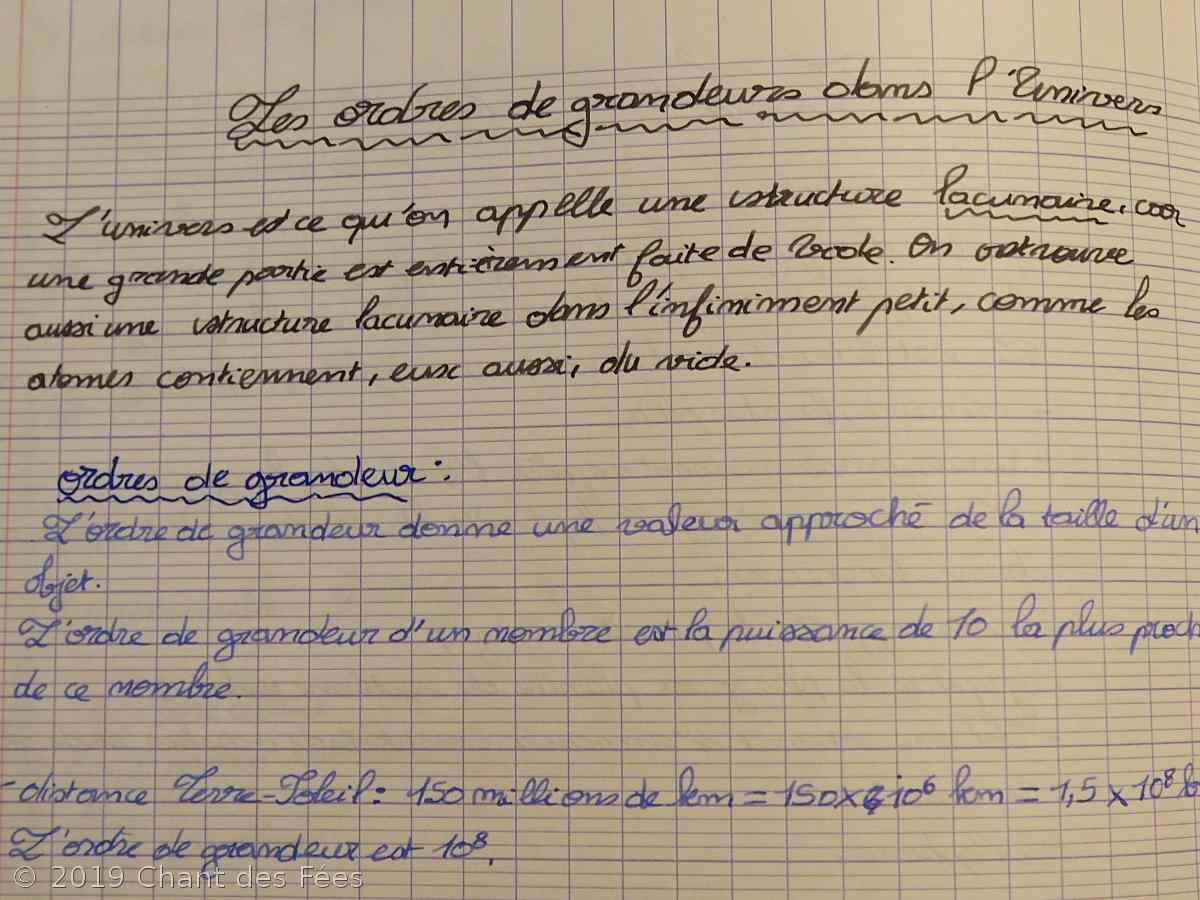 Les ordres de grandeurs dans l'Univers
L'univers est ce qu'on appelle une structure lacunaire, car
une grande partie est entièrement faite de vide. On retrouve
aussi une structure lacunaire dans l'infiniment petit, comme les
atomes contiennent, eux aussi, du vide.
ordres de grandeur :
L'ordre de grandeur donne une valeur approché de la taille d'un
objet.
L'ordre de grandeur d'un nombre est la puissance de 10 la plus proch
de ce nombre.
-distance Terre-Soleil : 150 millions de km = 150 × 10⁶ km = 1,5 × 10⁸ k
L'ordre de grandeur est 10⁸.
© 2019 Chant des Fées